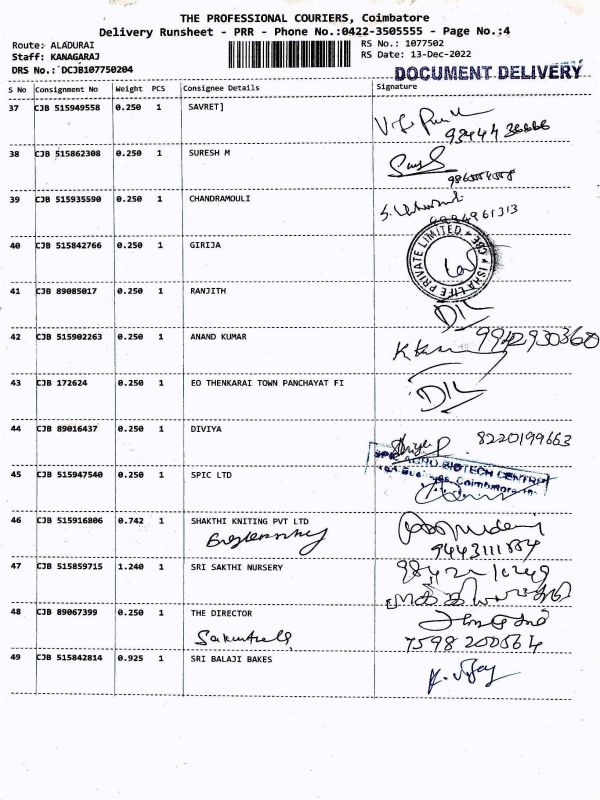 THE PROFESSIONAL COURIERS, Coimbatore
Delivery Runsheet - PRR - Phone No.:0422-3505555 - Page No.:4
Route: ALADURAI
Staff: KANAGARAJ
DRS No.: DCJB107750204
RS No.: 1077502
RS Date: 13-Dec-2022
DOCUMENT DELIVERY
S No Consignment No Weight PCS Consignee Details Signature
37 CJB 515949558 0.250 1 SAVRET]
38 CJB 515862308 0.250 1 SURESH M
39 CJB 515935590 0.250 1 CHANDRAMOULI
40 CJB 515842766 0.250 1 GIRIJA
ISHA LIFE PRIVATE LIMITED * CBE *
41 CJB 89085017 0.250 1 RANJITH
DIL
42 CJB 515902263 0.250 1 ANAND KUMAR
9942930360
43 CJB 172624 0.250 1 EO THENKARAI TOWN PANCHAYAT FI
DIL
44 CJB 89016437 0.250 1 DIVIYA
8220199663
SPIC AGRO BIOTECH CENTRE
45 CJB 515947540 0.250 1 SPIC LTD
46 CJB 515916806 0.742 1 SHAKTHI KNITING PVT LTD
47 CJB 515859715 1.240 1 SRI SAKTHI NURSERY
48 CJB 89067399 0.250 1 THE DIRECTOR
7598200564
49 CJB 515842814 0.925 1 SRI BALAJI BAKES
K. Vijay